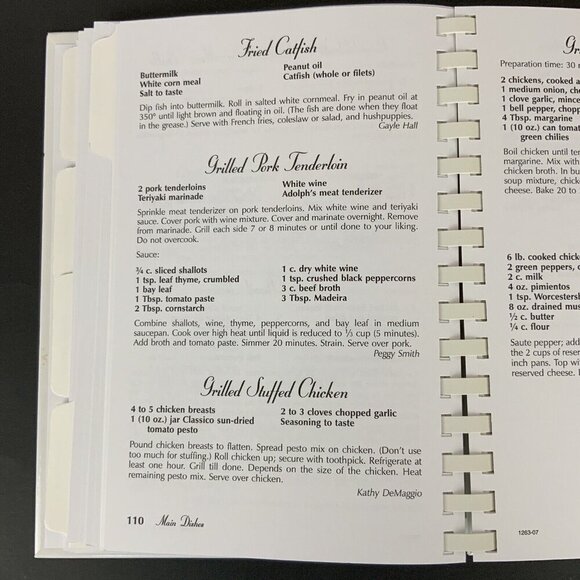 Fried Catfish
Buttermilk
White corn meal
Salt to taste
Peanut oil
Catfish (whole or filets)
Dip fish into buttermilk. Roll in salted white cornmeal. Fry in peanut oil at
350° until light brown and floating in oil. (The fish are done when they float
in the grease.) Serve with French fries, coleslaw or salad, and hushpuppies.
Gayle Hall
Grilled Pork Tenderloin
2 pork tenderloins
Teriyaki marinade
White wine
Adolph's meat tenderizer
Sprinkle meat tenderizer on pork tenderloins. Mix white wine and teriyaki
sauce. Cover pork with wine mixture. Cover and marinate overnight. Remove
from marinade. Grill each side 7 or 8 minutes or until done to your liking.
Do not overcook.
Sauce:
¾ c. sliced shallots
1 tsp. leaf thyme, crumbled
1 bay leaf
1 Tbsp. tomato paste
2 Tbsp. cornstarch
1 c. dry white wine
1 tsp. crushed black peppercorns
3 c. beef broth
3 Tbsp. Madeira
Combine shallots, wine, thyme, peppercorns, and bay leaf in medium
saucepan. Cook over high heat until liquid is reduced to ⅓ cup (5 minutes).
Add broth and tomato paste. Simmer 20 minutes. Strain. Serve over pork.
Peggy Smith
Grilled Stuffed Chicken
4 to 5 chicken breasts
1 (10 oz.) jar Classico sun-dried
tomato pesto
2 to 3 cloves chopped garlic
Seasoning to taste
Pound chicken breasts to flatten. Spread pesto mix on chicken. (Don't use
too much for stuffing.) Roll chicken up; secure with toothpick. Refrigerate at
least one hour. Grill till done. Depends on the size of the chicken. Heat
remaining pesto mix. Serve over chicken.
Kathy DeMaggio
110 Main Dishes
Preparation time: 30
2 chickens, cooked
1 medium onion,
1 clove garlic,
1 bell pepper,
4 Tbsp. margarine
1 (10 oz.) can
green chilies
Boil chicken until
margarine. Mix with
chicken broth. In
soup mixture,
cheese. Bake 20 to
6 lb. cooked
2 green peppers,
2 c. milk
4 oz. pimientos
1 tsp.
8 oz. drained
½ c. butter
¼ c. flour
Saute pepper; add
the 2 cups of
inch pans. Top
reserved cheese.
1263-07